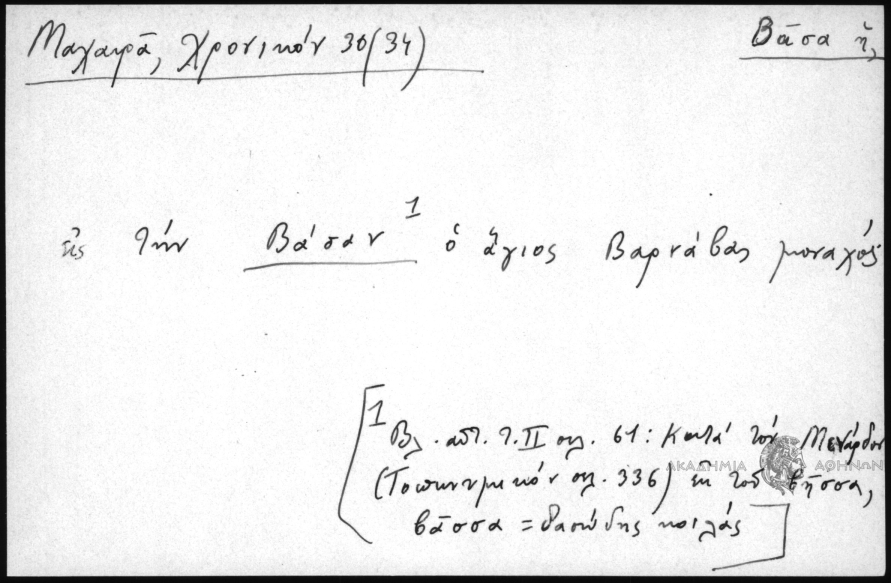 Μαχαιρᾶ, Χρονικόν 30(34)
Βᾶσα ἡ,
εἰς τὴν Βάσαν 1 ὁ ἅγιος Βαρνάβας μοναχός
1 Βλ. αὐτ. τ. II σελ. 61: Κατά τόν Μενάρδον
(Τοπωνυμικόν σελ. 336) ἐκ τοῦ βῆσσα,
βᾶσσα = δασώδης κοιλάς
ΑΚΑΔΗΜΙΑ ΑΘΗΝΩΝ